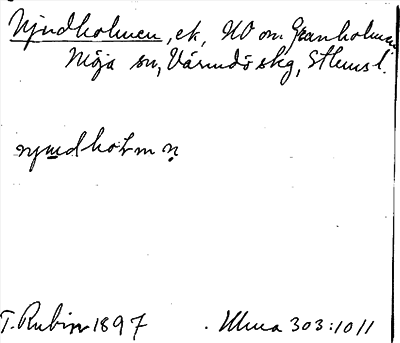 Nyndholmen, ek, NO om Granholmen
Möja sn, Värmdö skg, Sthlms l.
nyndholm n̥
T. Rubin 1897 . Ulma 303:1011